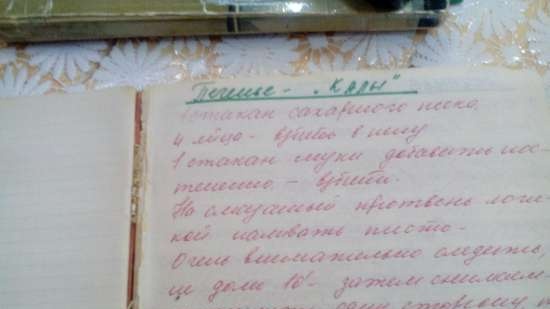 Печенье - „Каллы"
1 стакан сахарного песка,
4 яйца - взбить в пену
1 стакан муки добавить пос-
тепенно - взбить.
На смазанный противень лож-
кой наливать тесто -
Очень внимательно следить,
не доли 10' - затем снимаем
одну сторону,